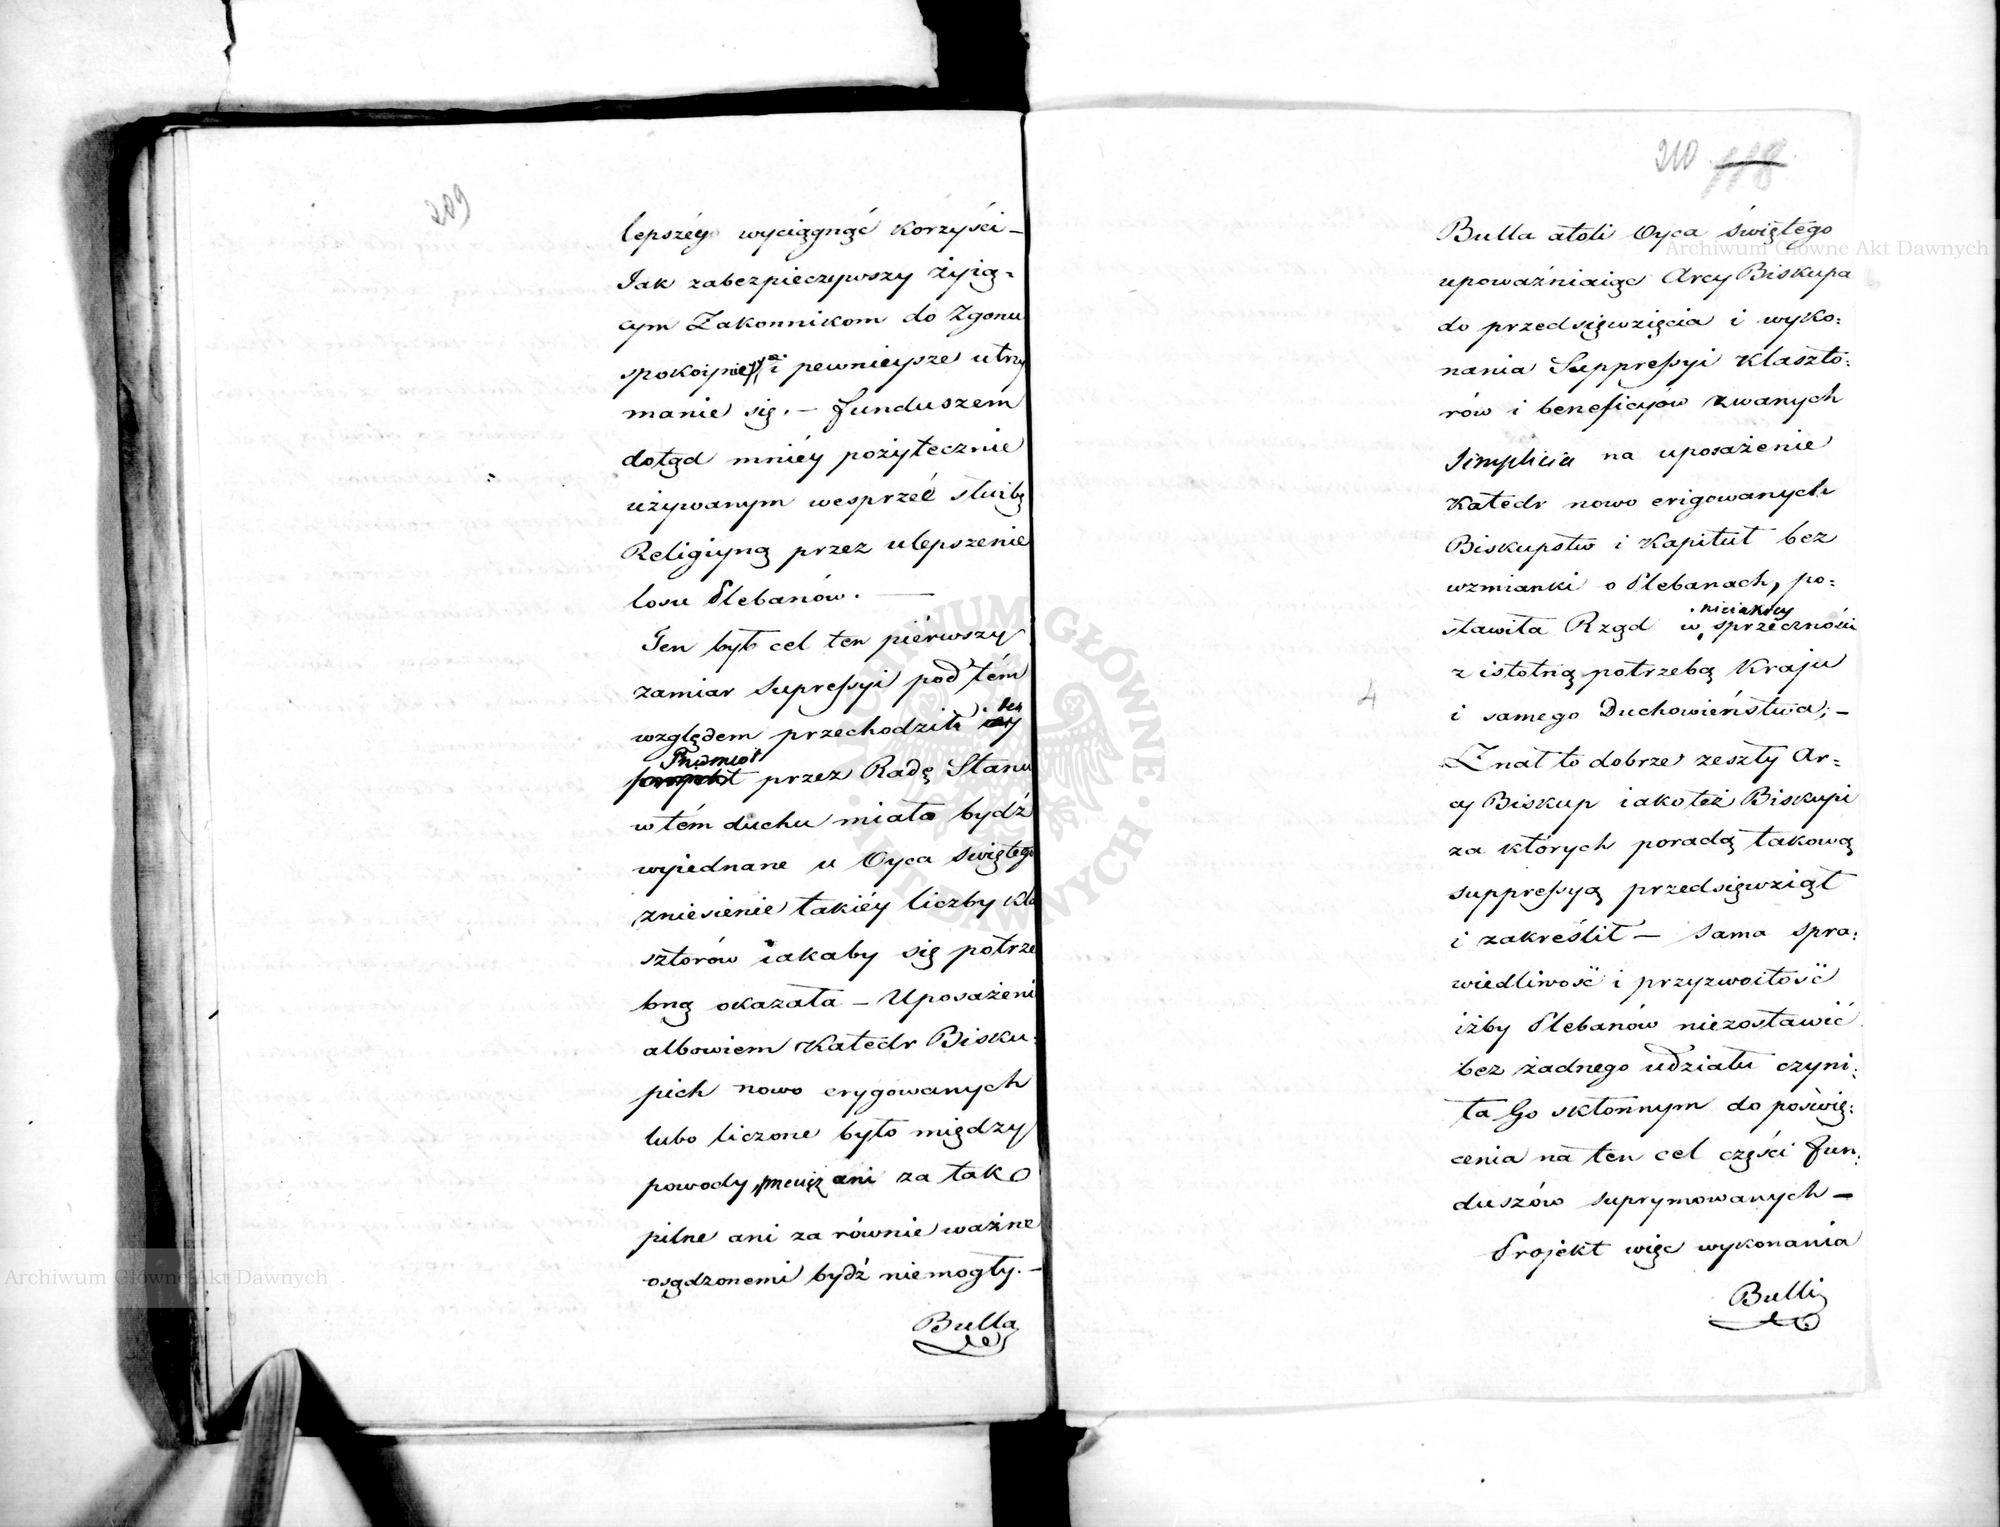 209
lepszéy wyciągnąć korzyści –
Jak zabezpieczywszy żyią=
cym Zakonnikom do Zgonu
spokoynie i pewnieysze utrzy
manie się. – funduszem
dotąd mniéy pożytecznie
używanym wesprzeć służbę
Religiyną przez ulepszenie
losu Plebanów. —
Ten był cel ten piérwszy
zamiar supressyi pod tém
ten
względem przechodził
Przedmiot
przez Radę Stanu
w tém duchu miało bydź
wyiednane u Oyca świętego
zniesienie takiéy liczby Kla
sztorów iakaby się potrze
bną okazała – Uposażeni
albowiem Katedr Bisku=
pich nowo erygowanych
lubo liczone było między
powody, przecież ani za tak
pilne ani za równie ważne
osądzonemi bydź niemogły. –
Bulla
210 118
Bulla atoli Oyca świętego
upoważniaiąc Arcy Biskupa
do przedsięwzięcia i wyko=
nania Suppressyi Klaszto=
rów i beneficyów zwanych
Simplicia na uposażenie
Katedr nowo erigowanych
Biskupstw i Kapituł bez
wzmianki o Plebanach, po=
nieiakiey
stawiła Rząd w sprzeczności
z istotną potrzebą Kraju
i samego Duchowieństwa; –
Znał to dobrze zeszły Ar=
cy Biskup iako też Biskupi
za których poradą takową
suppressyą przedsięwziął
i zakreślił – sama spra=
wiedliwość i przyzwoitość
iżby Plebanów niezostawić
bez żadnego udziału czyni=
ła Go skłonnym do poświę=
cenia na ten cel części fun=
duszów suprymowanych –
Projekt więc wykonania
Bulli
4